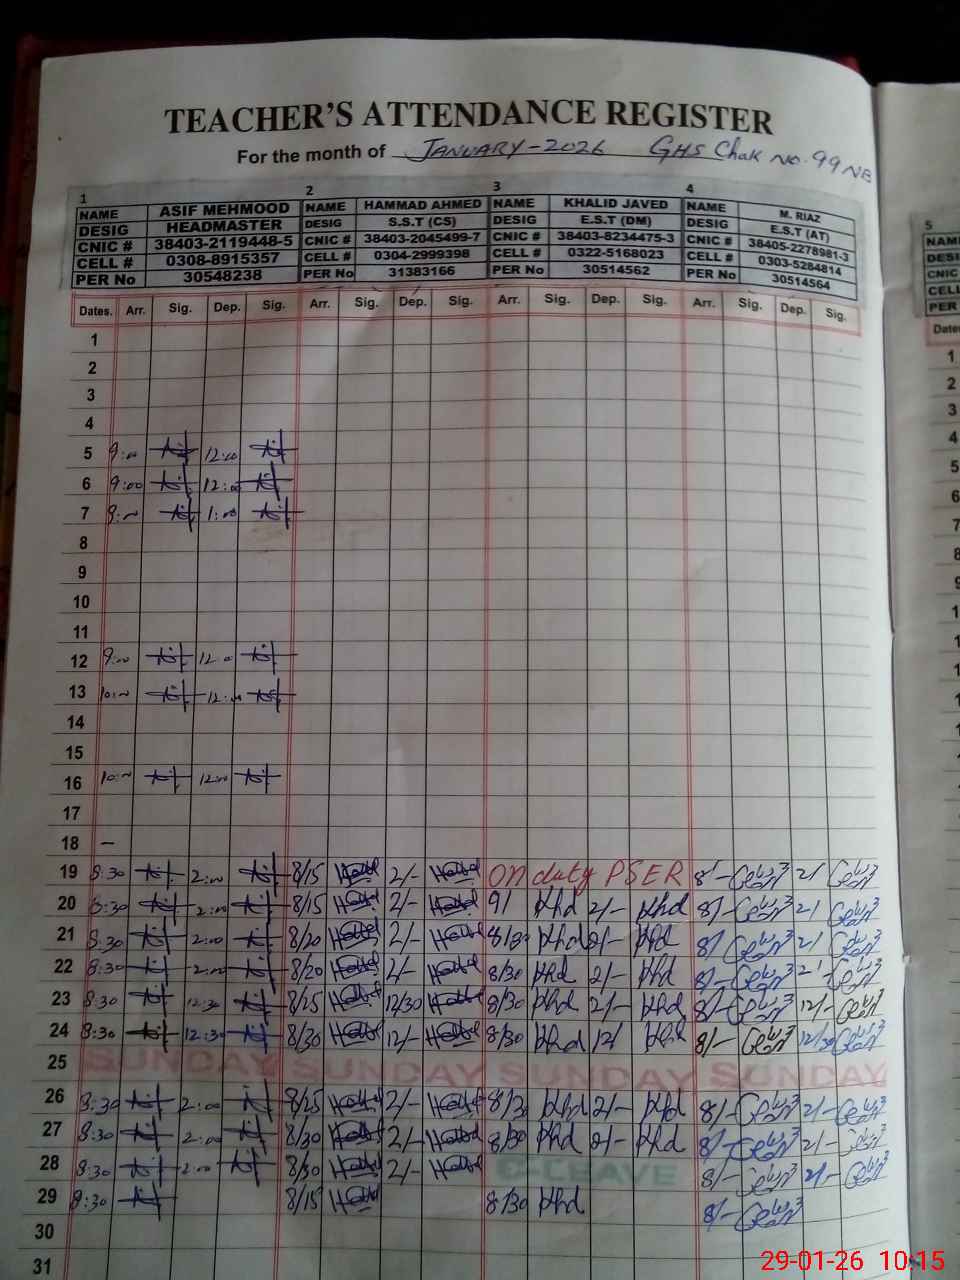 TEACHER'S ATTENDANCE REGISTER
For the month of JANUARY-2026 GHS Chak No. 99 NB
1 2 3 4
NAME ASIF MEHMOOD NAME HAMMAD AHMED NAME KHALID JAVED NAME M. RIAZ
DESIG HEADMASTER DESIG S.S.T (CS) DESIG E.S.T (DM) DESIG E.S.T (AT)
CNIC # 38403-2119448-5 CNIC # 38403-2045499-7 CNIC # 38403-8234475-3 CNIC # 38405-2278981-3
CELL # 0308-8915357 CELL # 0304-2999398 CELL # 0322-5168023 CELL # 0303-5284814
PER No 30548238 PER No 31383166 PER No 30514562 PER No 30514564
Dates. Arr. Sig. Dep. Sig. Arr. Sig. Dep. Sig. Arr. Sig. Dep. Sig. Arr. Sig. Dep. Sig.
1
2
3
4
5 9:00 12:00
6 9:00 12:00
7 9:00 1:00
8
9
10
11
12 9:00 12:00
13 10:00 12:00
14
15
16 10:00 12:00
17
18 –
19 8:30 2:00 8/15 2/- On duty PSER 8/- 2/
20 8:30 2:00 8/15 2/- 9/ Khd 2/- Khd 8/- 2/
21 8:30 2:00 8/20 2/- 8/30 Khd 2/- Khd 8/ 2/
22 8:30 2:00 8/20 2/- 8/30 Khd 2/- Khd 8/- 2/
23 8:30 12:30 8/25 12/30 8/30 Khd 2/- Khd 8/- 12/-
24 8:30 12:30 8/30 12/- 8/30 Khd 12/ Khd 8/- 12/30
25 SUNDAY SUNDAY SUNDAY SUNDAY
26 8:30 2:00 8/25 2/- 8/30 Khd 2/- Khd 8/- 2/-
27 8:30 2:00 8/30 2/- 8/30 Khd 2/- Khd 8/- 2/-
28 8:30 2:00 8/30 2/- C-LEAVE 8/- 2/-
29 8:30 8/15 8/30 Khd 8/-
30
31
5
NAM
DESI
CNIC
CELL
PER
Date
1
2
3
4
5
6
7
8
29-01-26 10:15